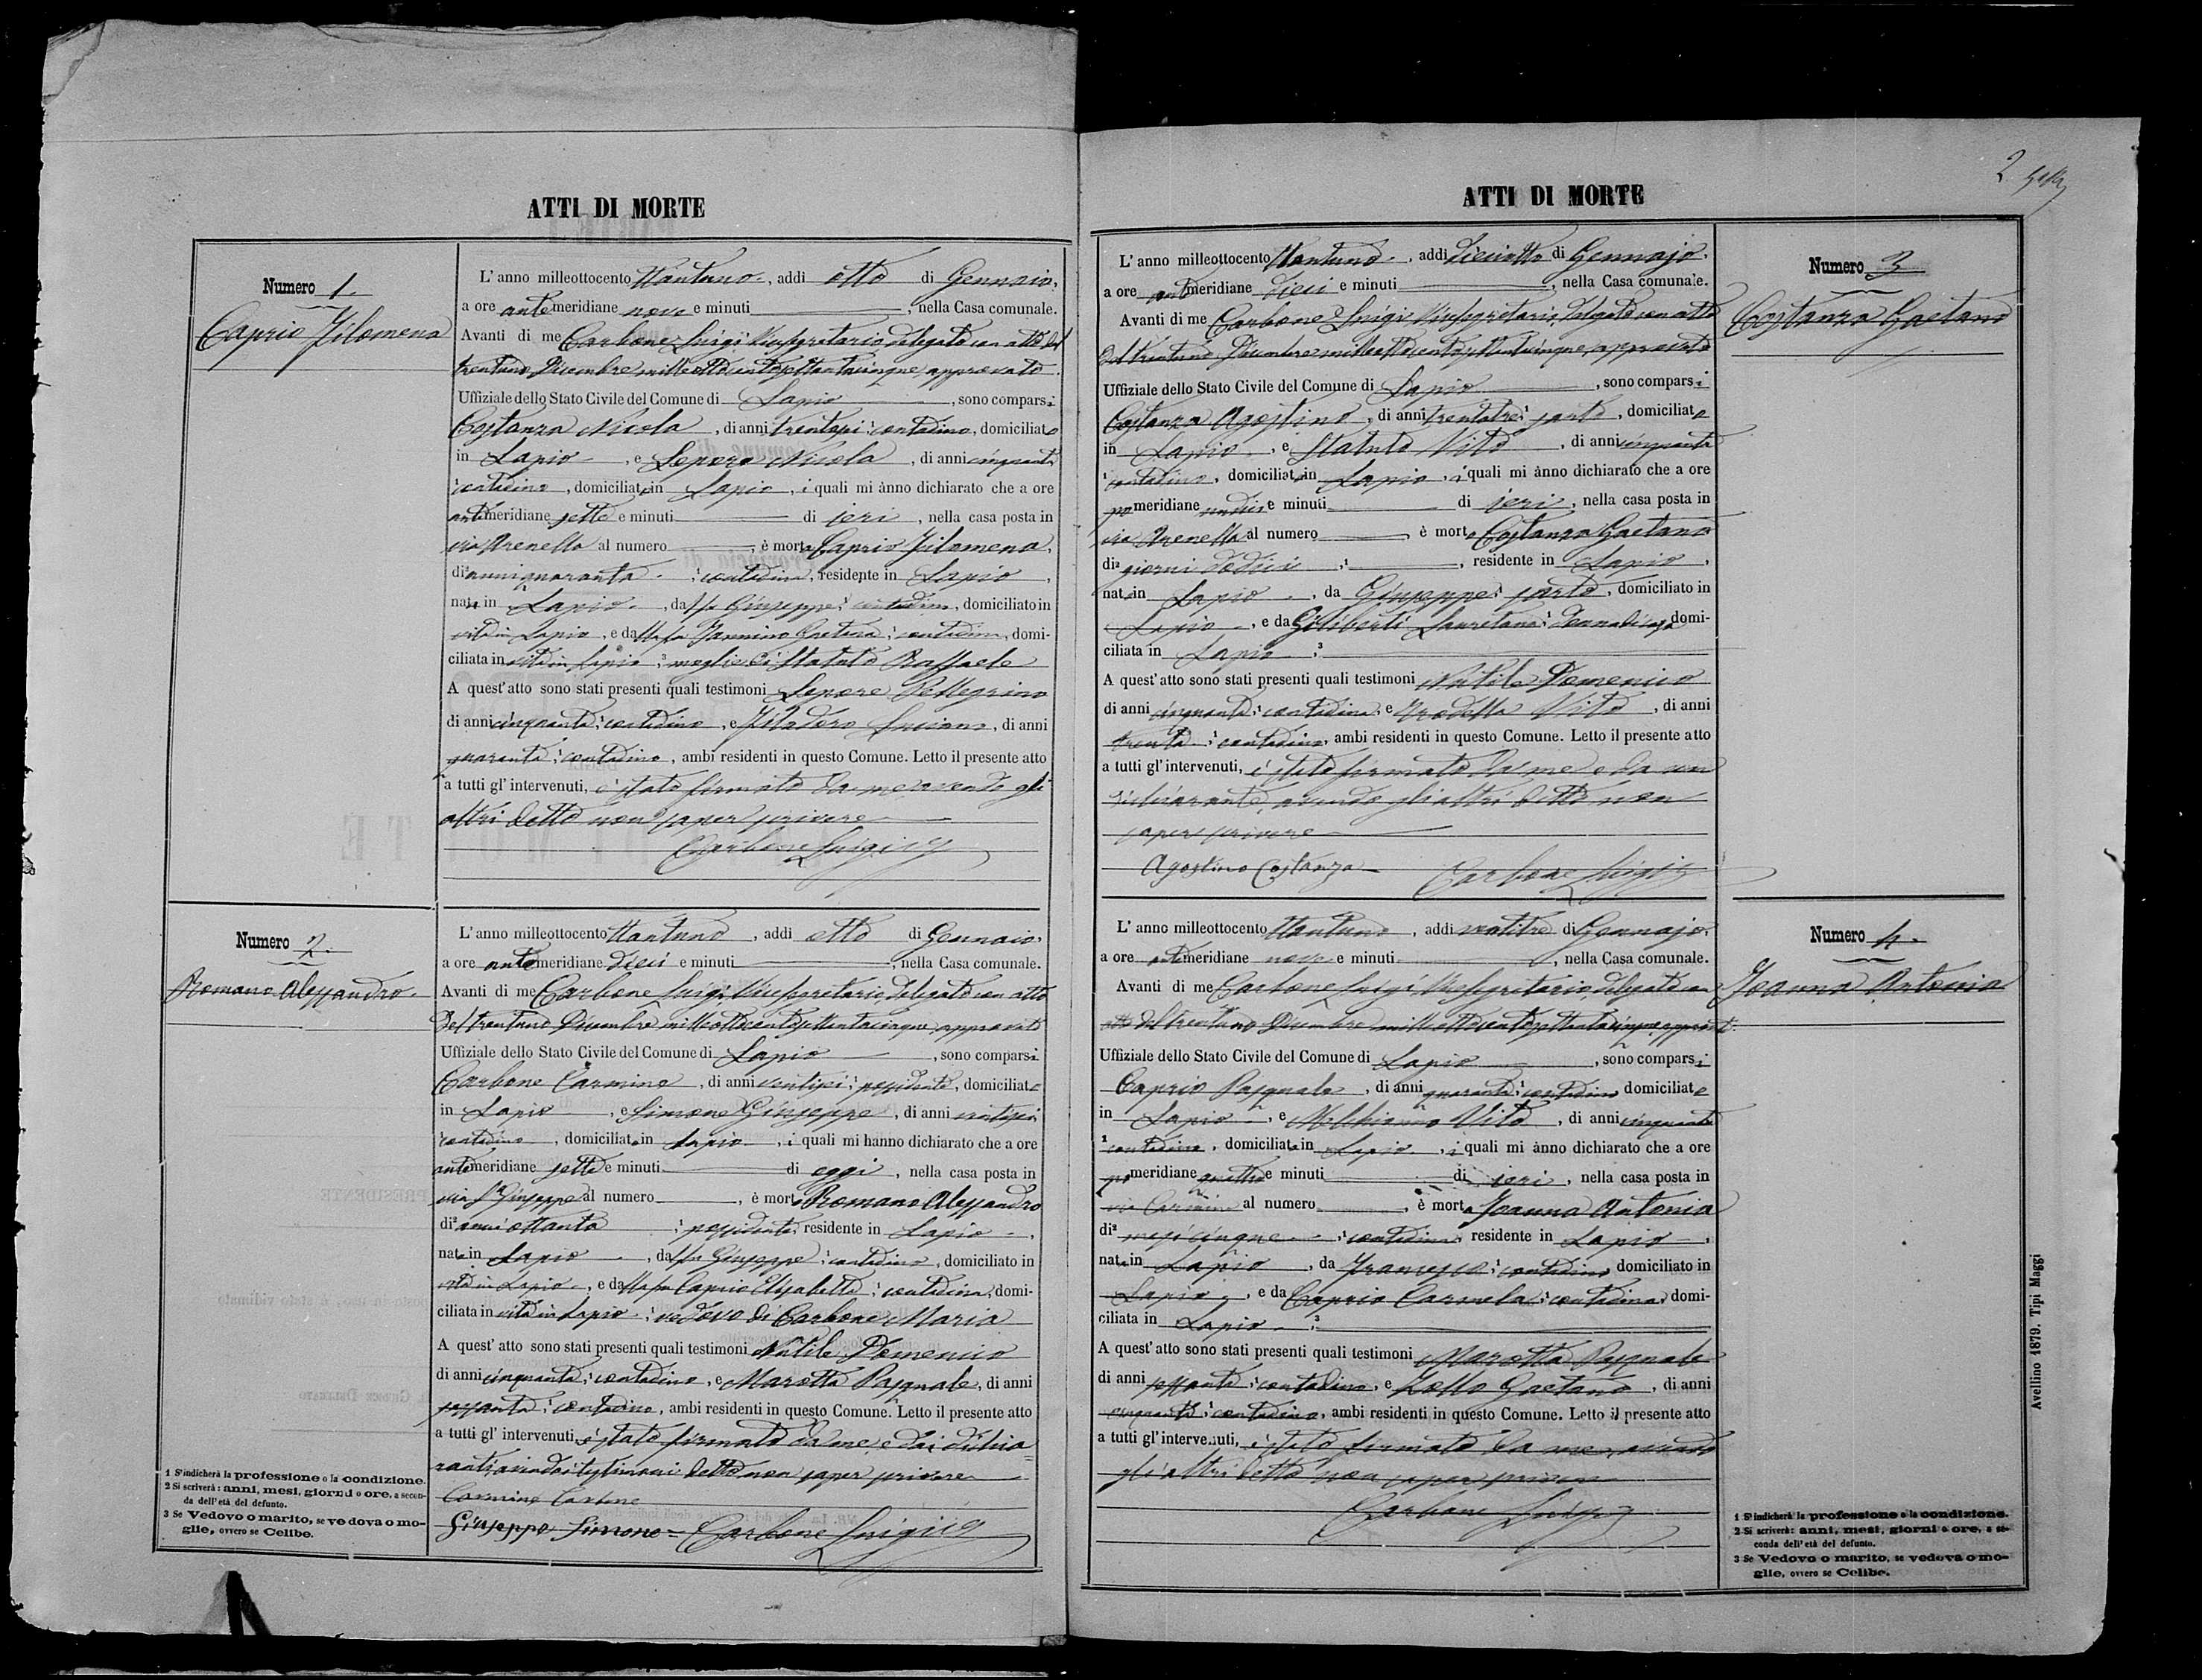 ATTI DI MORTE
Numero 1.
Caprio Filomena
L' anno milleottocento ttantuno, addi otto di Gennaio,
a ore antemeridiane nove e minuti , nella Casa comunale.
Avanti di me Carbone Luigi Vicesegretario delegato con atto del
trentuno Dicembre milleottocentosettantacinque approvato
Uffiziale dello Stato Civile del Comune di Lapio , sono comparsi
Costanza Nicola , di anni trentasei ; contadino, domiciliato
in Lapio , e Lepore Nicola , di anni cinquanta
contadino , domiciliato in Lapio , i quali mi ànno dichiarato che a ore
antimeridiane sette e minuti di jeri , nella casa posta in
via Arenella al numero , è morta Caprio Filomena,
di anni quaranta ; contadina , residente in Lapio ,
nata in Lapio , dal fu Giuseppe ; contadino , domiciliato in
vita in Lapio , e dalla fu Jannino Gaetana ; contadina, domi-
ciliata in vita in Lapio ; moglie di Statuto Raffaele
A quest' atto sono stati presenti quali testimoni Lepore Pellegrino
di anni cinquanta ; contadino , e Luciano , di anni
quaranta ; contadino , ambi residenti in questo Comune. Letto il presente atto
a tutti gl' intervenuti, è stato firmato da me avendo gli
altri detto non saper scrivere
Carbone Luigi
Numero 2.
Romano Alessandro.
L' anno milleottocento ttantuno , addi otto di Gennaio,
a ore antemeridiane dieci e minuti , nella Casa comunale.
Avanti di me Carbone Luigi Vicesegretario delegato con atto
del trentuno Dicembre milleottocentosettantacinque approvato
Uffiziale dello Stato Civile del Comune di Lapio , sono comparsi
Carbone Carmine , di anni ventisei ; possidente, domiciliato
in Lapio , e Simone Giuseppe , di anni ventisei
contadino , domiciliato in Lapio , i quali mi hanno dichiarato che a ore
antemeridiane sette e minuti di oggi , nella casa posta in
via S. Giuseppe al numero , è morto Romano Alessandro
di anni ottanta ; possidente, residente in Lapio ,
nato in Lapio , dal fu Giuseppe ; contadino , domiciliato in
vita in Lapio , e dalla fu Caprio Elisabetta ; contadina, domi-
ciliata in vita in Lapio ; vedovo di Carbone Maria
A quest' atto sono stati presenti quali testimoni Nutile Domenico
di anni cinquanta ; contadino , e Marotta Pasquale , di anni
sessanta ; contadino , ambi residenti in questo Comune. Letto il presente atto
a tutti gl' intervenuti, è stato firmato da me e dai dichia
ranti, avendo i testimoni detto non saper scrivere
Carmine Carbone
Giuseppe Simone - Carbone Luigi
1 S'indicherà la professione o la condizione.
2 Si scriverà: anni, mesi, giorni o ore, a secon-
da dell'età del defunto.
3 Se Vedovo o marito, se vedova o mo-
glie, ovvero se Celibe.
2
ATTI DI MORTE
L' anno milleottocento ttantuno , addi dieciotto di Gennajo,
a ore antemeridiane dieci e minuti , nella Casa comunale.
Avanti di me Carbone Luigi Vicesegretario delegato con atto
del trentuno Dicembre milleottocentosettantacinque approvato
Uffiziale dello Stato Civile del Comune di Lapio , sono comparsi
Costanza Agostino , di anni trentatre ; sarto , domiciliato
in Lapio , e Statuto Vito , di anni cinquanta
contadino , domiciliato in Lapio , i quali mi ànno dichiarato che a ore
pomeridiane undici e minuti di jeri , nella casa posta in
via Arenella al numero , è morto Costanza Gaetano
di giorni dodici , residente in Lapio ,
nato in Lapio , da Giuseppe ; sarto , domiciliato in
Lapio , e da Giliberti Lauretana ; donna di casa, domi-
ciliata in Lapio
A quest' atto sono stati presenti quali testimoni Nutile Domenico
di anni cinquanta ; contadino , e Vito , di anni
trenta ; contadino, ambi residenti in questo Comune. Letto il presente atto
a tutti gl' intervenuti, è stato firmato da me e da un
dichiarante, avendo gli altri detto non
saper scrivere
Agostino Costanza Carbone Luigi
Numero 3
Costanza Gaetano
L' anno milleottocento ttantuno , addi ventitre di Gennajo,
a ore antimeridiane nove e minuti , nella Casa comunale.
Avanti di me Carbone Luigi Vicesegretario delegato con
atto del trentuno Dicembre milleottocentosettantacinque approvat
Uffiziale dello Stato Civile del Comune di Lapio , sono comparsi
Caprio Pasquale , di anni quaranta ; contadino domiciliato
in Lapio , e Melchionno Vito , di anni cinquanta
contadino , domiciliato in Lapio , i quali mi ànno dichiarato che a ore
pomeridiane quattro e minuti di jeri , nella casa posta in
via Carmine al numero , è morta Joanna Antonia
di mesi cinque ; contadina, residente in Lapio ,
nata in Lapio , da Francesco ; contadino domiciliato in
Lapio , e da Caprio Carmela ; contadina, domi-
ciliata in Lapio
A quest' atto sono stati presenti quali testimoni Marotta Pasquale
di anni sessanta ; contadino , e Zollo Gaetano , di anni
cinquanta ; contadino, ambi residenti in questo Comune. Letto il presente atto
a tutti gl' intervenuti, è stato firmato da me, avendo
gli altri detto non saper scrivere
Carbone Luigi
Numero 4.
Joanna Antonia
1 S'indicherà la professione o la condizione.
2 Si scriverà: anni, mesi, giorni o ore, a se-
conda dell'età del defunto.
3 Se Vedovo o marito, se vedova o mo-
glie, ovvero se Celibe.
Avellino 1879. Tipi Maggi